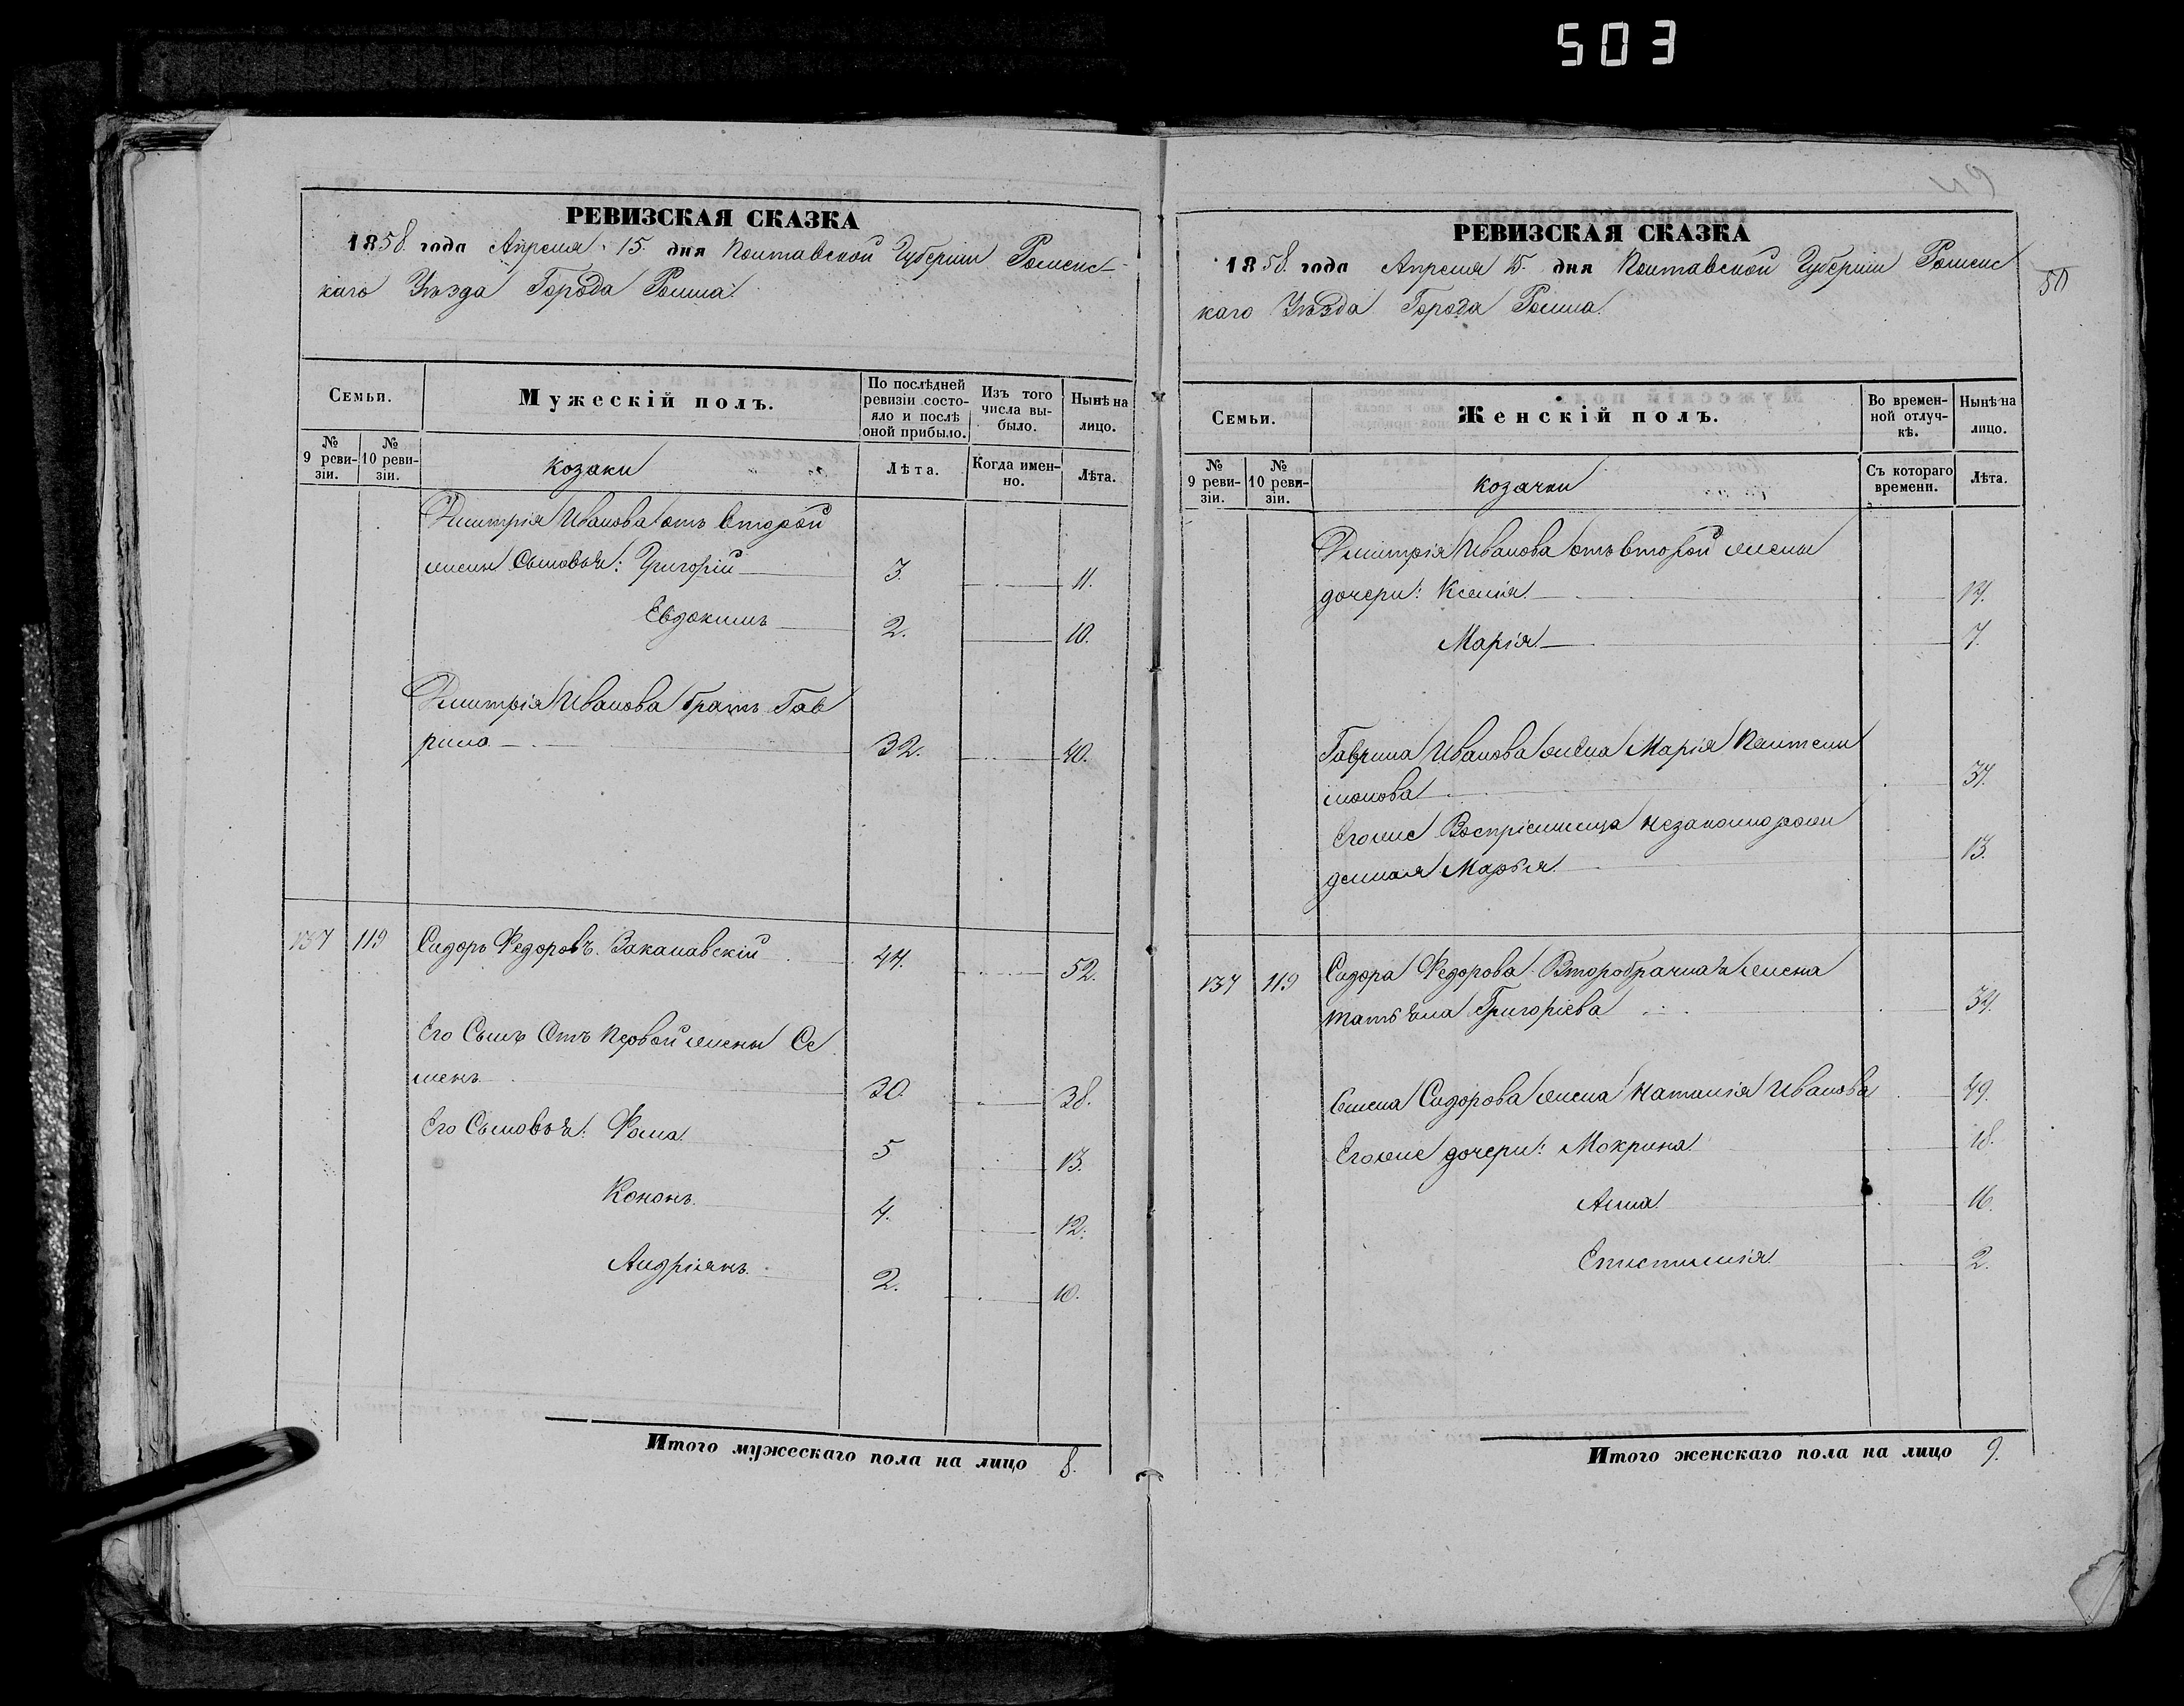 503
РЕВИЗСКАЯ СКАЗКА
1858. года Апреля 15. дня Полтавской Губерніи Роменс-
каго Уѣзда Города Ромна.
Семьи.
Мужескій полъ.
По послѣдней ревизіи состояло и послѣ оной прибыло.
Изъ того числа выбыло.
Нынѣ на лицо.
№ 9 ревизіи.
№ 10 ревизіи.
козаки
Лѣта.
Когда именно.
Лѣта.
Дмитрія Иванова отъ второй
жены Сыновья: Григорій 3. 11.
Евдокимъ 2. 10.
Дмитрія Иванова братъ Гав
рило 32. 40.
137 119 Сидоръ Федоровъ Закалавскій 44. 52.
Его Сынъ Отъ Первой жены Се
менъ 30. 38.
Его Сыновья: Фома 5 13.
Кононъ 4. 12.
Андріянъ 2. 10.
Итого мужескаго пола на лицо 8.
РЕВИЗСКАЯ СКАЗКА
1858. года Апреля 15. дня Полтавской Губерніи Роменс
каго Уѣзда Города Ромна.
50
Семьи.
Женскій полъ.
Во временной отлучкѣ.
Нынѣ на лицо.
№ 9 ревизіи.
№ 10 ревизіи.
козачки
Съ котораго времени.
Лѣта.
Дмитрія Иванова отъ второй жены
дочери: Ксенія 14.
Марія 7.
Гаврила Иванова жена Марія Пантели
монова 37.
Егоже Воспріемница незаконнорож
денная Марья 13.
137 119 Сидора Федорова Второбрачная жена
Татьяна Григоріева 34.
Семена Сидорова жена Наталія Иванова 49.
Егоже дочери: Мокрина 18.
Анна 16.
Епистимія 2.
Итого женскаго пола на лицо 9.